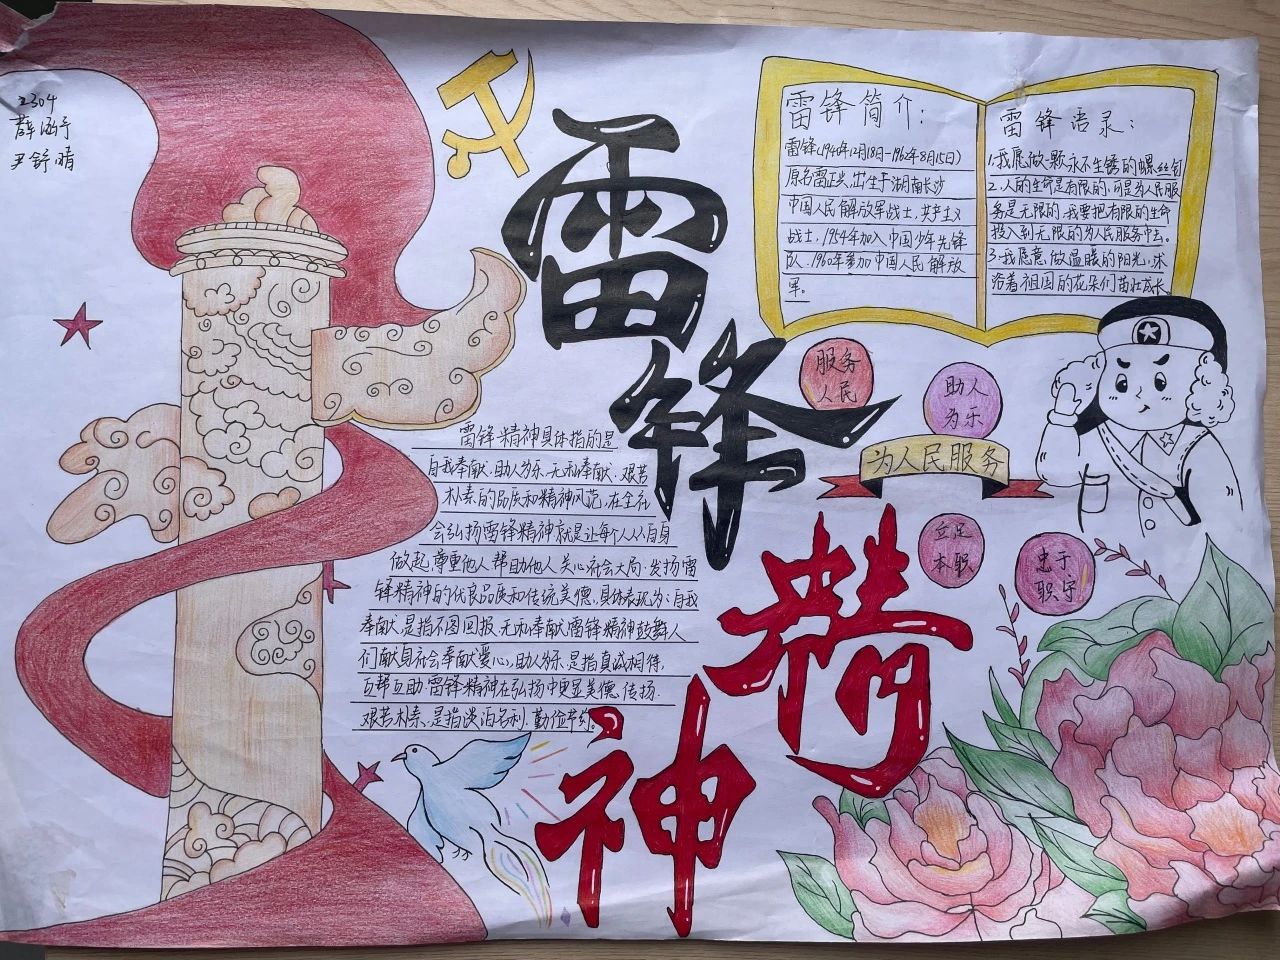 2304
薛涵予
尹舒晴
雷锋
精
神
雷锋简介：
雷锋(1940年12月18日-1962年8月15日)
原名雷正兴,出生于湖南长沙
中国人民解放军战士,共产主义
战士,1954年加入中国少年先锋
队.1960年参加中国人民解放
军。
雷锋语录：
1.我愿做一颗永不生锈的螺丝钉
2.人的生命是有限的,可是为人民服
务是无限的.我要把有限的生命
投入到无限的为人民服务中去。
3.我愿意做温暖的阳光,沐
浴着祖国的花朵们茁壮成长
服务
人民
助人
为乐
为人民服务
立足
本职
忠于
职守
雷锋精神具体指的是
自我奉献.助人为乐.无私奉献.艰苦
朴素的品质和精神风范,在全社
会弘扬雷锋精神就是让每个人从自身
做起,尊重他人帮助他人关心社会大局.发扬雷
锋精神的优良品质和传统美德。具体表现为：自我
奉献,是指不图回报.无私奉献雷锋精神鼓舞人
们献身社会奉献爱心。助人为乐.是指真诚相待,
互帮互助.雷锋精神在弘扬中更显美德.传扬.
艰苦朴素,是指淡泊名利.勤俭节约。